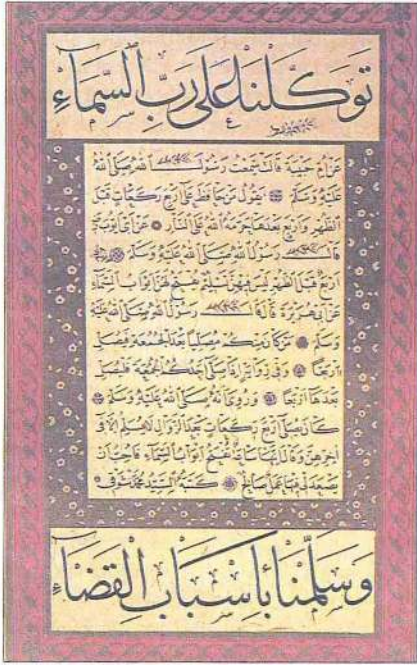 توكلنا على رب السماء
عن ام حبيبة قالت سمعت رسول الله صلى الله
عليه وسلم يقول من حافظ على اربع ركعات قبل
الظهر واربع بعدها حرمه الله على النار عن ابى ايوب
قال رسول الله صلى الله عليه وسلم
اربع قبل الظهر ليس فيهن تسليم تفتح لهن ابواب السماء
عن ابى هريرة قال قال رسول الله صلى الله عليه
وسلم من كان منكم مصليا بعد الجمعة فليصل
اربعا وفى رواية اذا صلى احدكم الجمعة فليصل
بعدها اربعا وروى انه صلى الله عليه وسلم
كان يصلى اربع ركعات بعد الزوال لا يسلم الا فى
اخرهن وقال انها ساعة تفتح ابواب السماء فاحب ان
يصعد لى فيها عمل صالح كتبه السيد محمد شوقى
وسلمنا بأسباب القضاء